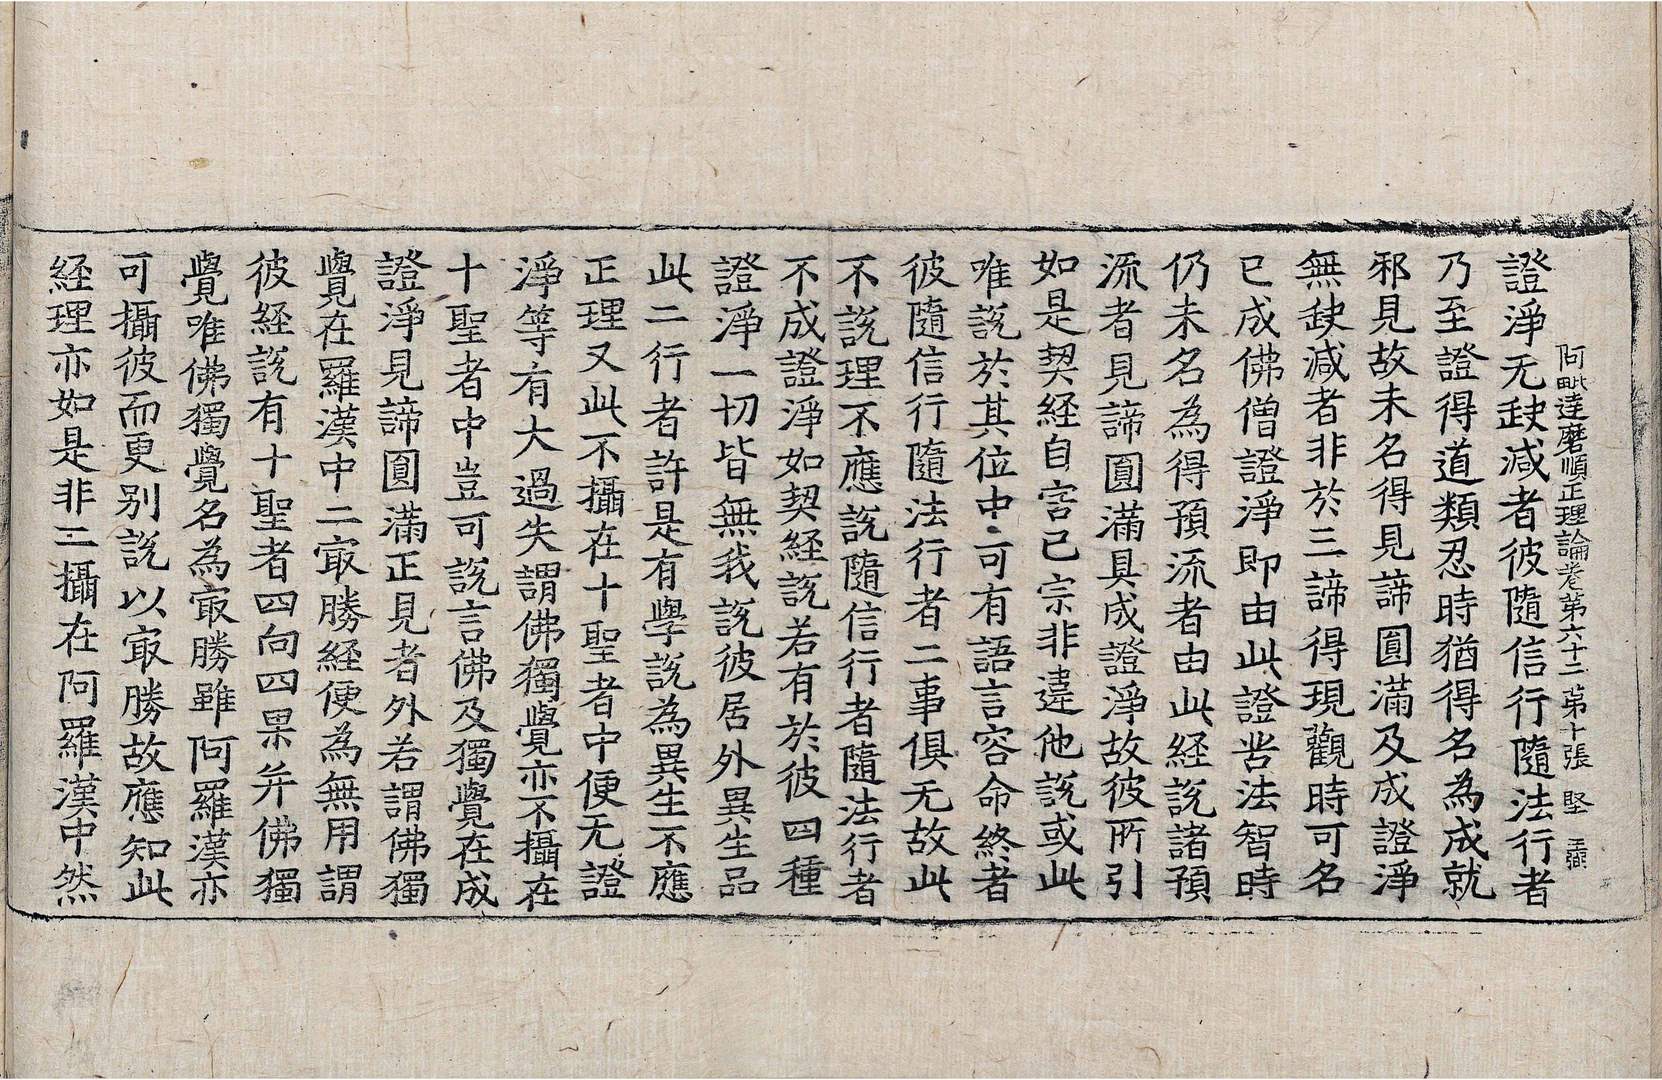 阿毗達磨順正理論卷第六十二 第十張 堅
證淨无缺減者彼隨信行隨法行者
乃至證得道類忍時猶得名為成就
邪見故未名得見諦圓滿及成證淨
無缺減者非於三諦得現觀時可名
已成佛僧證淨即由此證苦法智時
仍未名為得預流者由此經說諸預
流者見諦圓滿具成證淨故彼所引
如是契經自害已宗非違他說或此
唯說於其位中可有語言容命終者
彼隨信行隨法行者二事俱无故此
不說理不應說隨信行者隨法行者
不成證淨如契經說若有於彼四種
證淨一切皆無我說彼居外異生品
此二行者許是有學說為異生不應
正理又此不攝在十聖者中便无證
淨等有大過失謂佛獨覺亦不攝在
十聖者中豈可說言佛及獨覺在成
證淨見諦圓滿正見者外若謂佛獨
覺在羅漢中二㝡勝經便為無用謂
彼經說有十聖者四向四果并佛獨
覺唯佛獨覺名為㝡勝雖阿羅漢亦
可攝彼而更别說以㝡勝故應知此
經理亦如是非三攝在阿羅漢中然